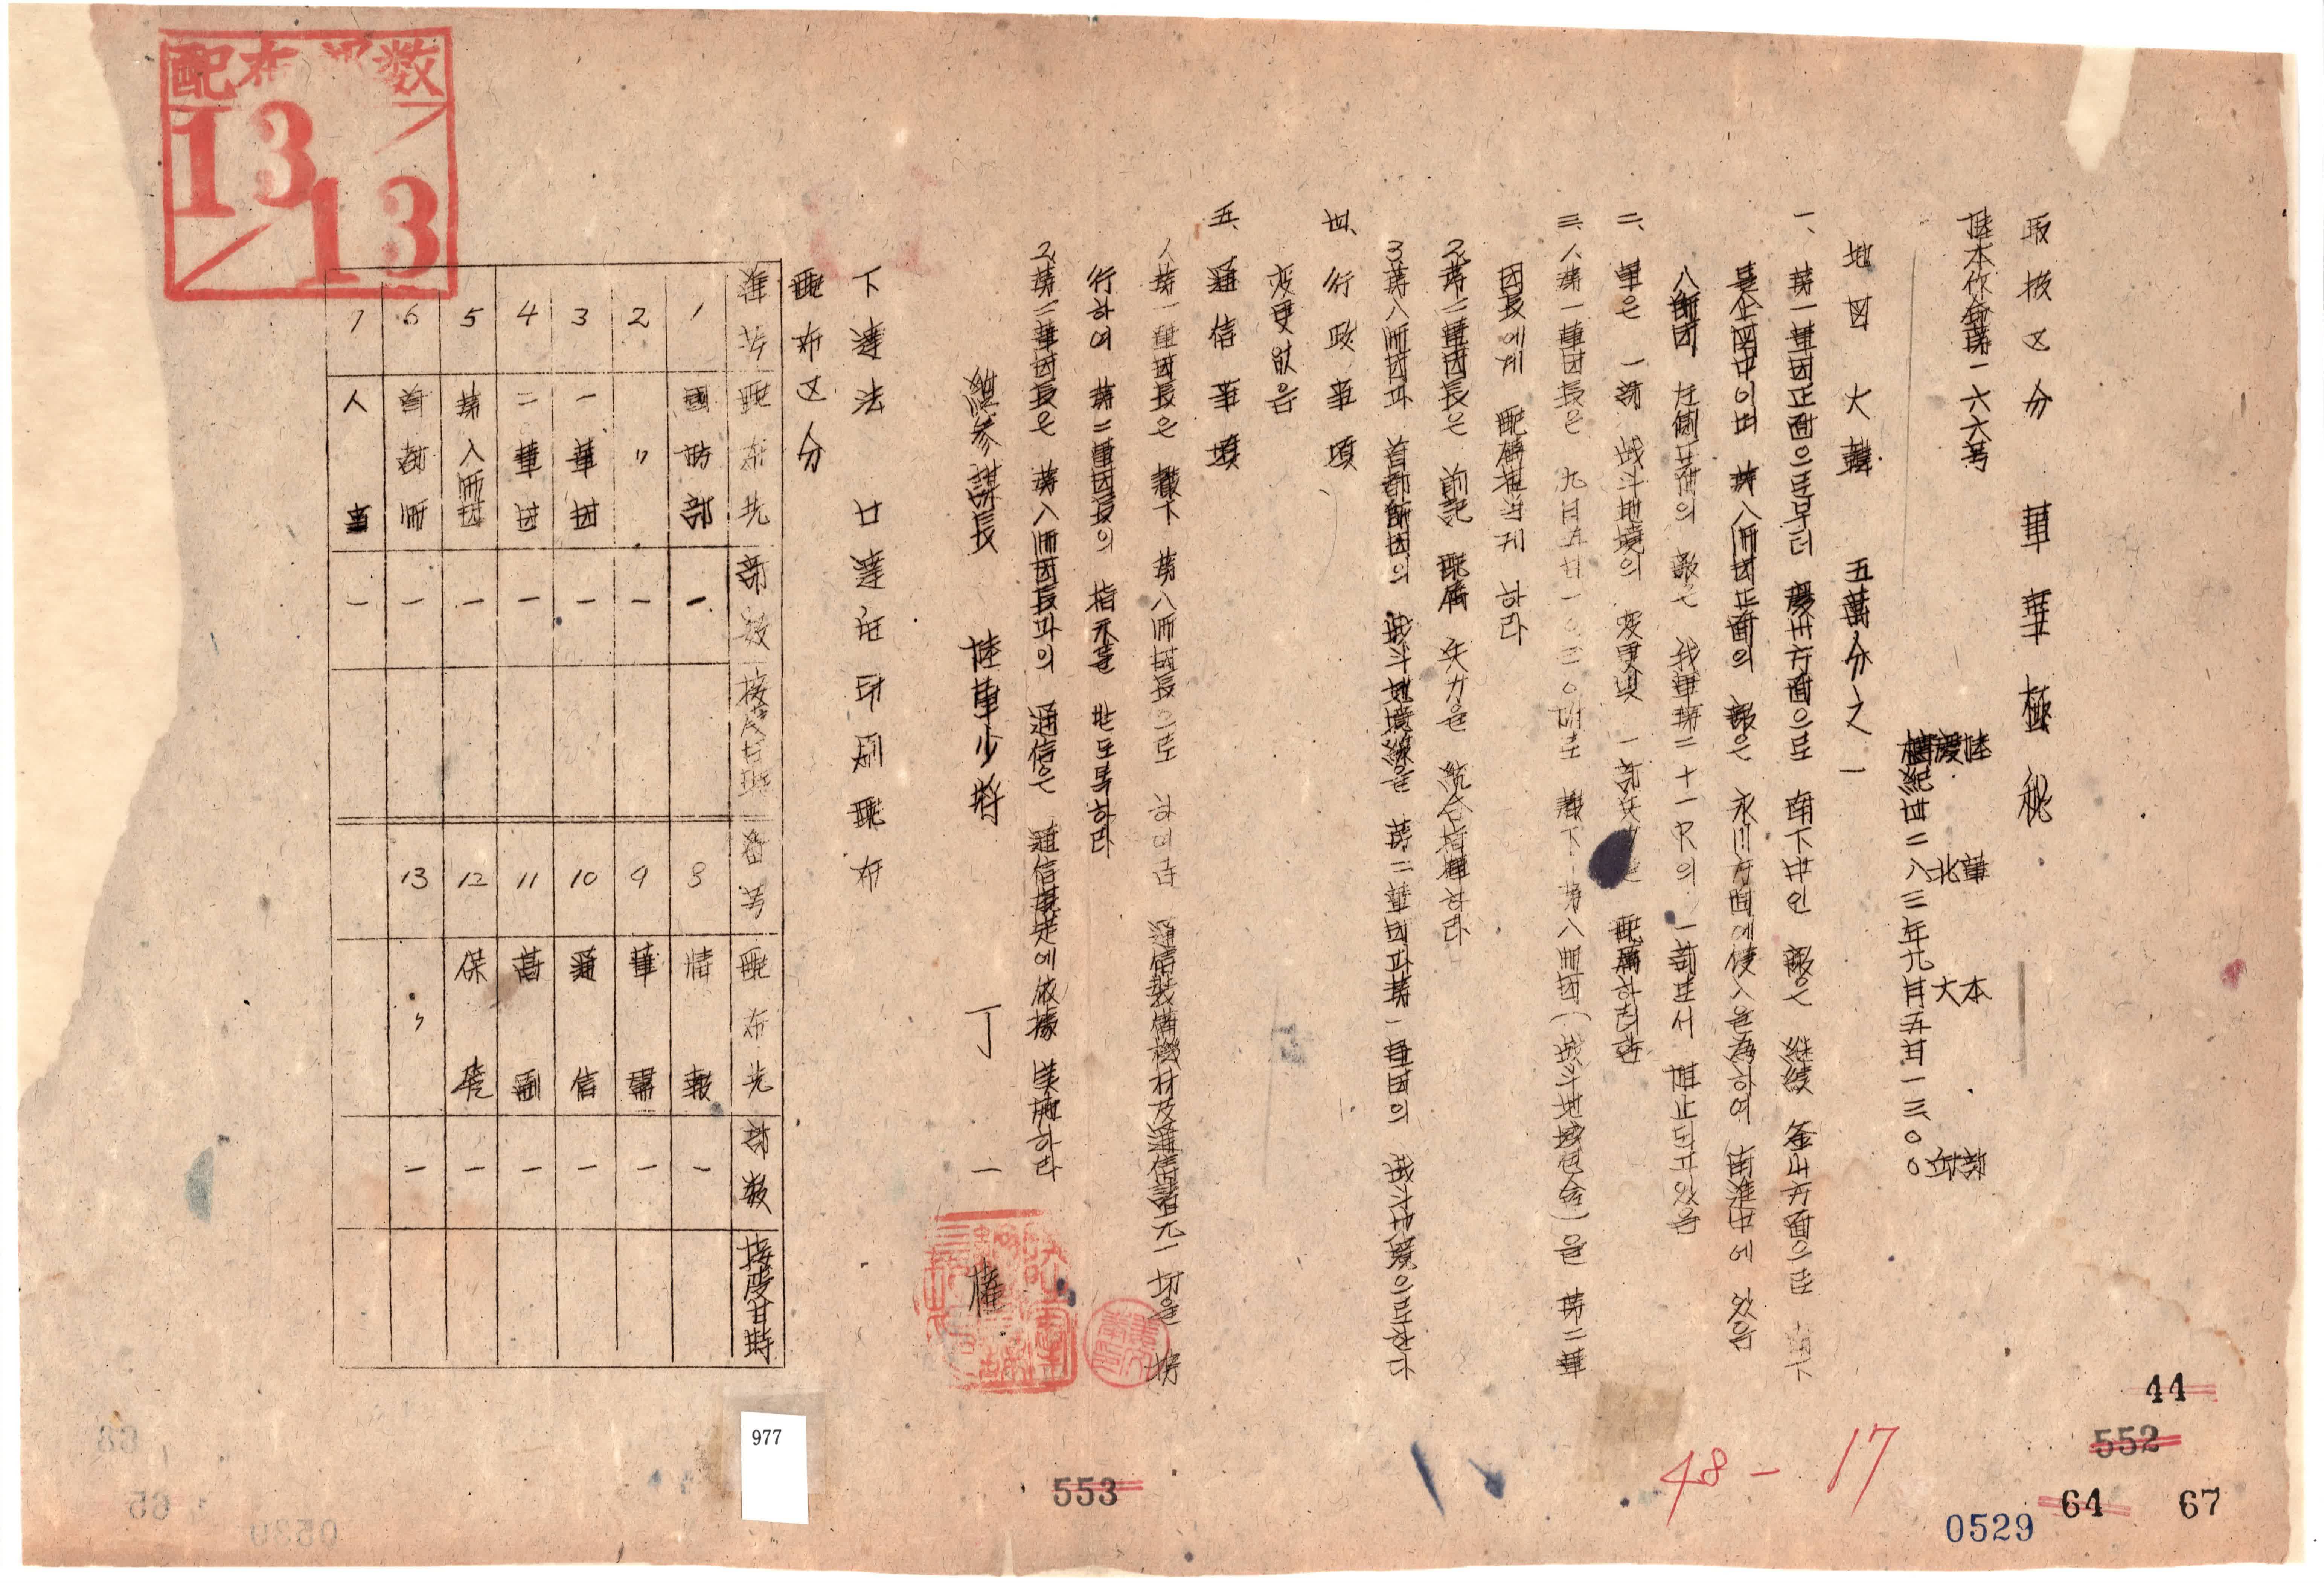 取扱区分 軍事極秘
陸本作命第一六六号
陸軍本部
慶北大邱
檀紀四二八三年九月五日一三、〇〇
地図 大韓 五萬分之一
一、第一軍団正面으로부터 慶州方面으로 南下中인 敵은 继续 釜山方面으로 南下
是企図中이며 第八師団正面의 敵은 永川方面에侵入을为하여 南進中에 있음
八師団 左側正面의 敵은 我軍第二十一R의 一部로서 阻止되고있음
二、軍은 一部 战斗地境의 变更및 一部兵力을 配属하려함
三、1、第一軍団長은 九月五日一〇三〇때로 麾下 第八師団(战斗地域包含)을 第二軍
団長에게 配属担当게 하라
2、第二軍団長은 前記 配属 兵力을 統合指揮하라
3、第八師団과 首都師団의 战斗地境線을 第二軍団과第一軍団의 战斗地境으로한다
四、行政事項
变更없음
五、通信事項
1、第一軍団長은 麾下 第八師団長으로 하여금 通信装備機材及通信諸元一切을 携
行하여 第二軍団長의 指示를 받도록하라
2、第二軍団長은 第八師団長과의 通信은 通信規定에依據 実施하라
総参謀長 陸軍少将 丁一權
下達法 下達后印刷配布
配布区分
番号 配布先 部数 接受日時 番号 配布先 部数 接受日時
1 國防部 一 8 情報 一
2 〃 一 9 軍需 一
3 一軍団 一 10 通信 一
4 二軍団 一 11 高副 一
5 第八師団 一 12 保管 一
6 首都師 一 13 〃 一
7 人事 一
配布部数
13/13
977
553
48-17
44
552
64
67
0529